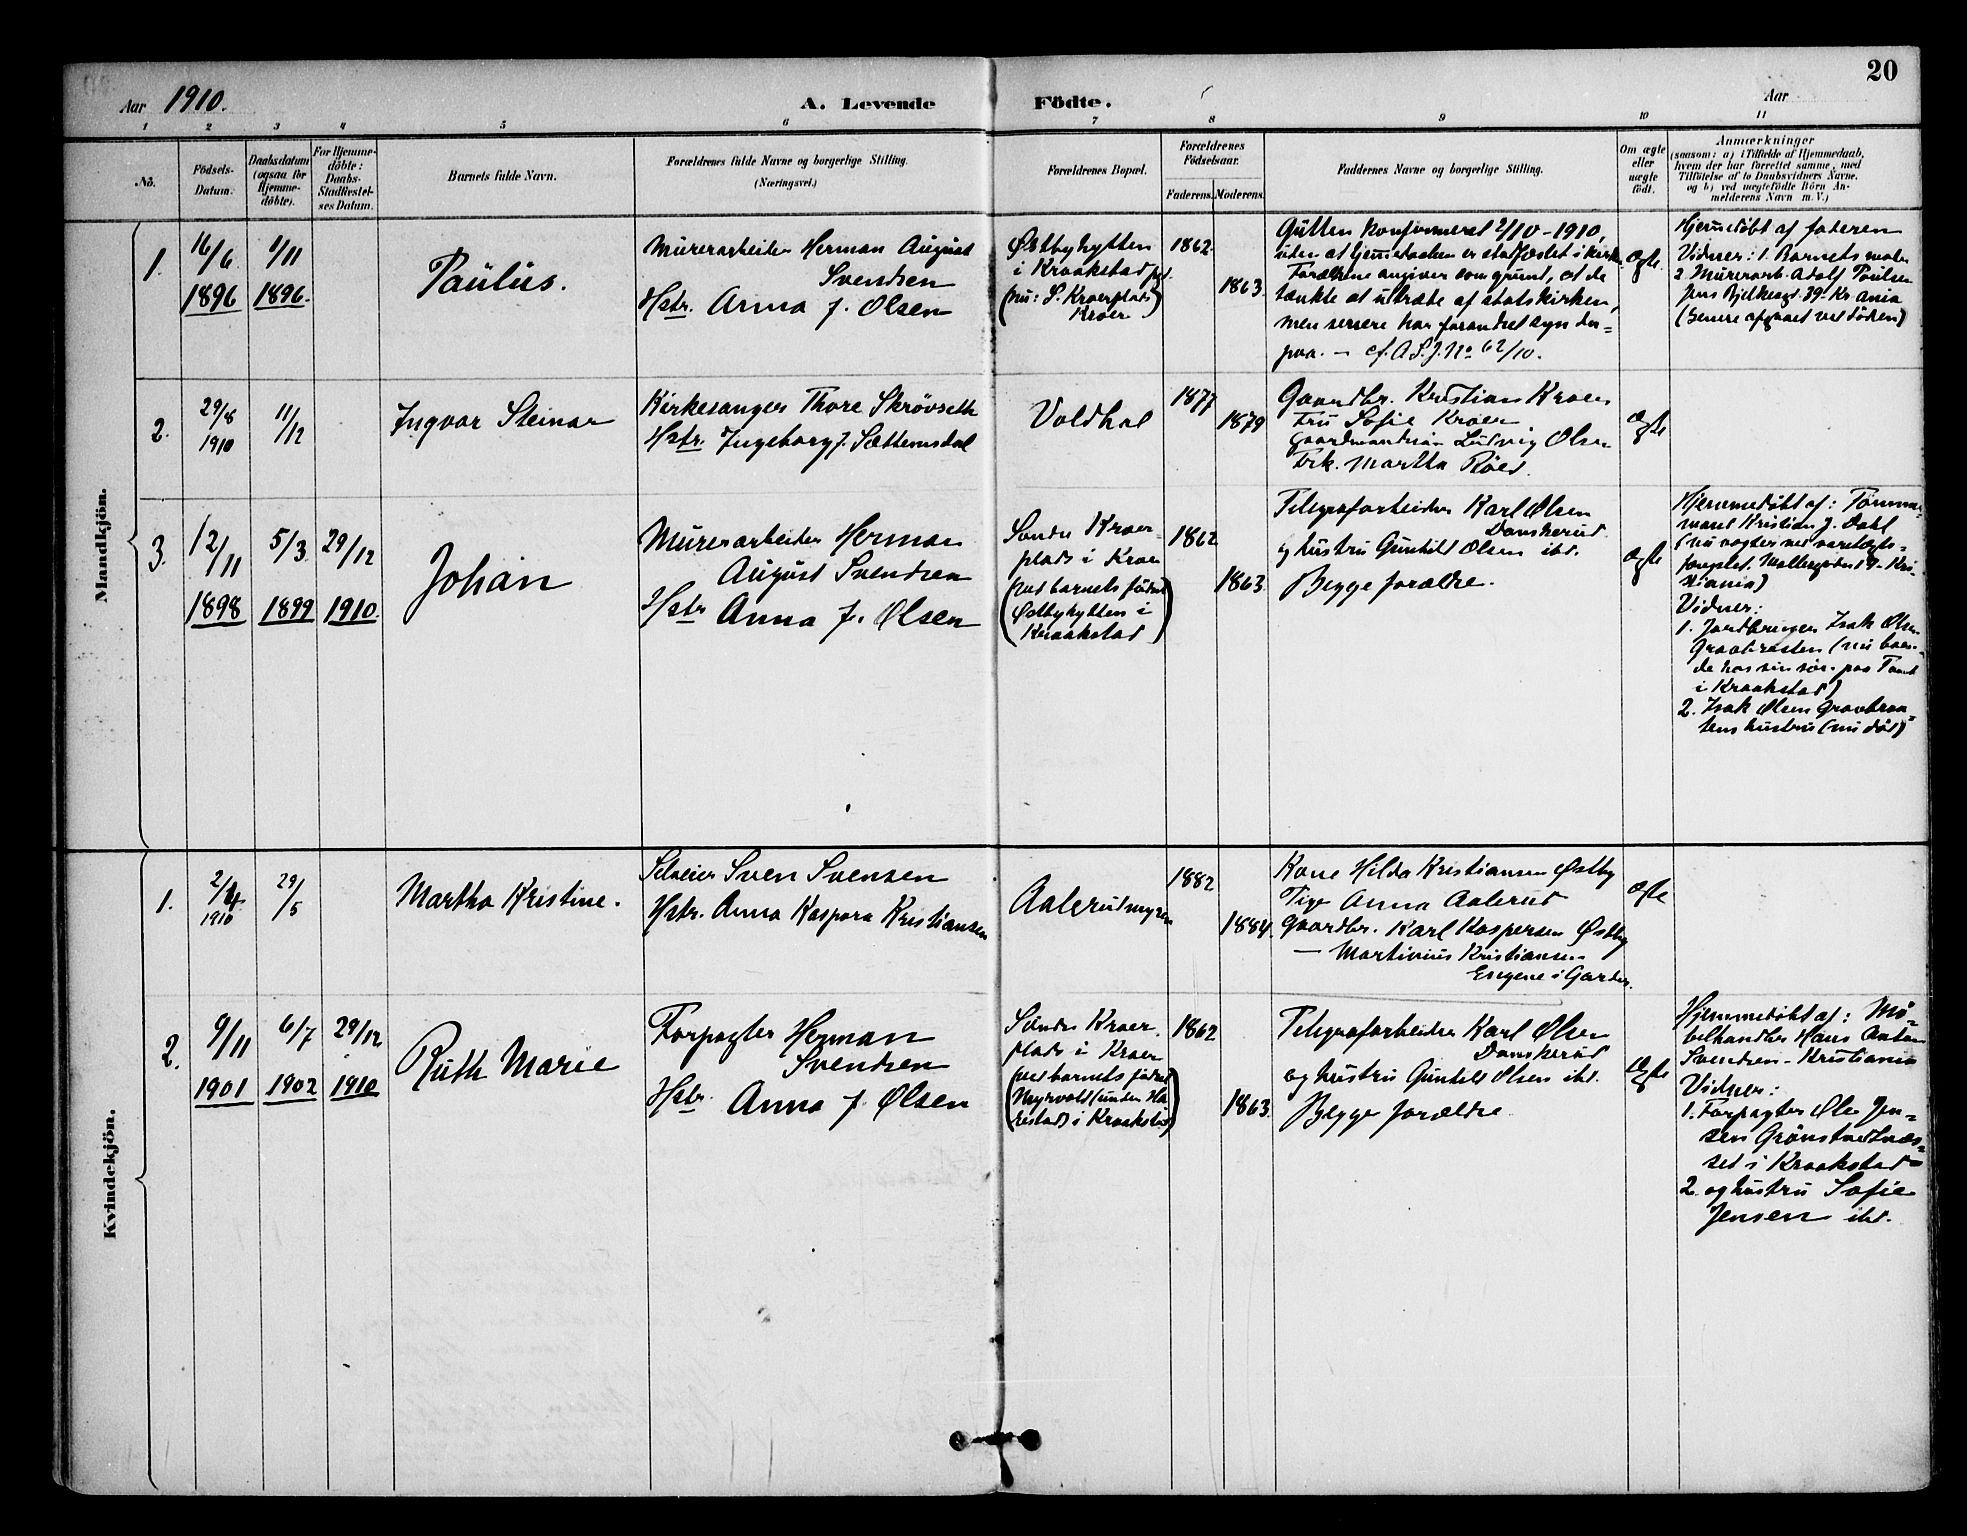 Aar 1910.
A. Levende Födte.
Aar
20
1 2 3 4 5 6 7 8 9 10 11
No.
Födsels-
Datum.
Daabsdatum
(ogsaa for
Hjemme-
döbte).
For Hjemme-
döbte:
Daabs-
Stadfæstel-
ses Datum.
Barnets fulde Navn.
Forældrenes fulde Navne og borgerlige Stilling.
(Næringsvei.)
Forældrenes Bopæl.
Forældrenes
Födselsaar.
Faderens. Moderens.
Faddernes Navne og borgerlige Stilling.
Om ægte
eller
uægte
födt.
Anmærkninger
(saasom: a) i Tilfælde af Hjemmedaab,
hvem der har forrettet samme, med
Tilföielse af to Daabsvidners Navne,
og b) ved uægtefödte Börn An-
melderens Navn m. V.)
Mandkjön.
1.
16/6
1896
1/11
1896.
Paulus.
Murerarbeider Herman August
Svendsen
Hstr. Anna J. Olsen
Østbyhytten
i Kraakstad
(nu: S. Kroerplads
Kroer)
1862
1863.
Gutten konfirmeret 2/10-1910,
uten at hjemmedaaben er stadfæstet i kirke.
Forældrene angiver som grund, at de
tænkte at utræde af statskirken,
men senere har forandret syn der=
paa. – cf. A.S.J. No 62/10.
ægte.
Hjemmedøbt af faderen
Vidner: 1. Barnets moder
2. Murerarb. Adolf Paulsen
Jens Bjelkesgt. 39. Kr.ania
(Senere afgaaet ved døden)
2.
29/8
1910
11/12
Ingvar Steinar
Kirkesanger Thore Skrövseth
Hstr. Ingeborg J. Sættemsdal
Voldhol
1877
1879
Gaardbr. Kristian Kroer
Fru Sofie Kroer
Gaardmandsøn Ludvig Olsen
Frk. Martha Röed.
ægte
3.
12/11
1898
5/3
1899
29/12
1910.
Johan
Murerarbeider Herman
August Svendsen
Hstr Anna J. Olsen
Søndre Kroer
plads i Kroer
(ved barnets fødsel
Østbyhytten i
Kraakstad)
1862
1863.
Telegrafarbeider Karl Olsen
Danskerud
og hustru Gunhild Olsen ibd.
Begge forældre.
ægte
Hjemmedøbt af: Tømmer-
mand Kristian J. Dahl
(nu vogter ved varetægts=
fængslet. Møllergaden 19. Kri-
stiania)
Vidner:
1. Jordbruger Isak Olsen
Graabræsten (nu boen-
de hos sin søn paa Tomt
i Kraakstad)
2. Isak Olsen Graabraa=
tens hustru (nu død)
Kvindekjön.
1.
2/4
1910
29/5
Martha Kristine.
Selveier Sven Svensen
Hstr. Anna Kaspara Kristiansen
Aalerudmyren
1882
1884.
Kone Hilda Kristiansen Østby
Pige Anna Aalerud
Gaardbr. Karl Kaspersen Østby
— Martinius Kristiansen
Engene i Garder.
ægte
2.
9/11
1901
6/7
1902
29/12
1910
Ruth Marie
Forpagter Herman
Svendsen
Hstr. Anna J. Olsen
Søndre Kroer
plads i Kroer
(ved barnets fødsel
Myrvold (under Ha
restad) i Kraakstad)
1862
1863.
Telegrafarbeider Karl Olsen
Danskerud
og hustru Gunhild Olsen ibd.
Begge forældre.
ægte
Hjemmedøbt af: Mø-
belhandler Hans Anton
Svendsen - Kristiania
Vidner:
1. Forpagter Ole Jen=
sen Grønstvedtnæs=
set i Kraakstad
2. og hustru Sofie
Jensen ibd.